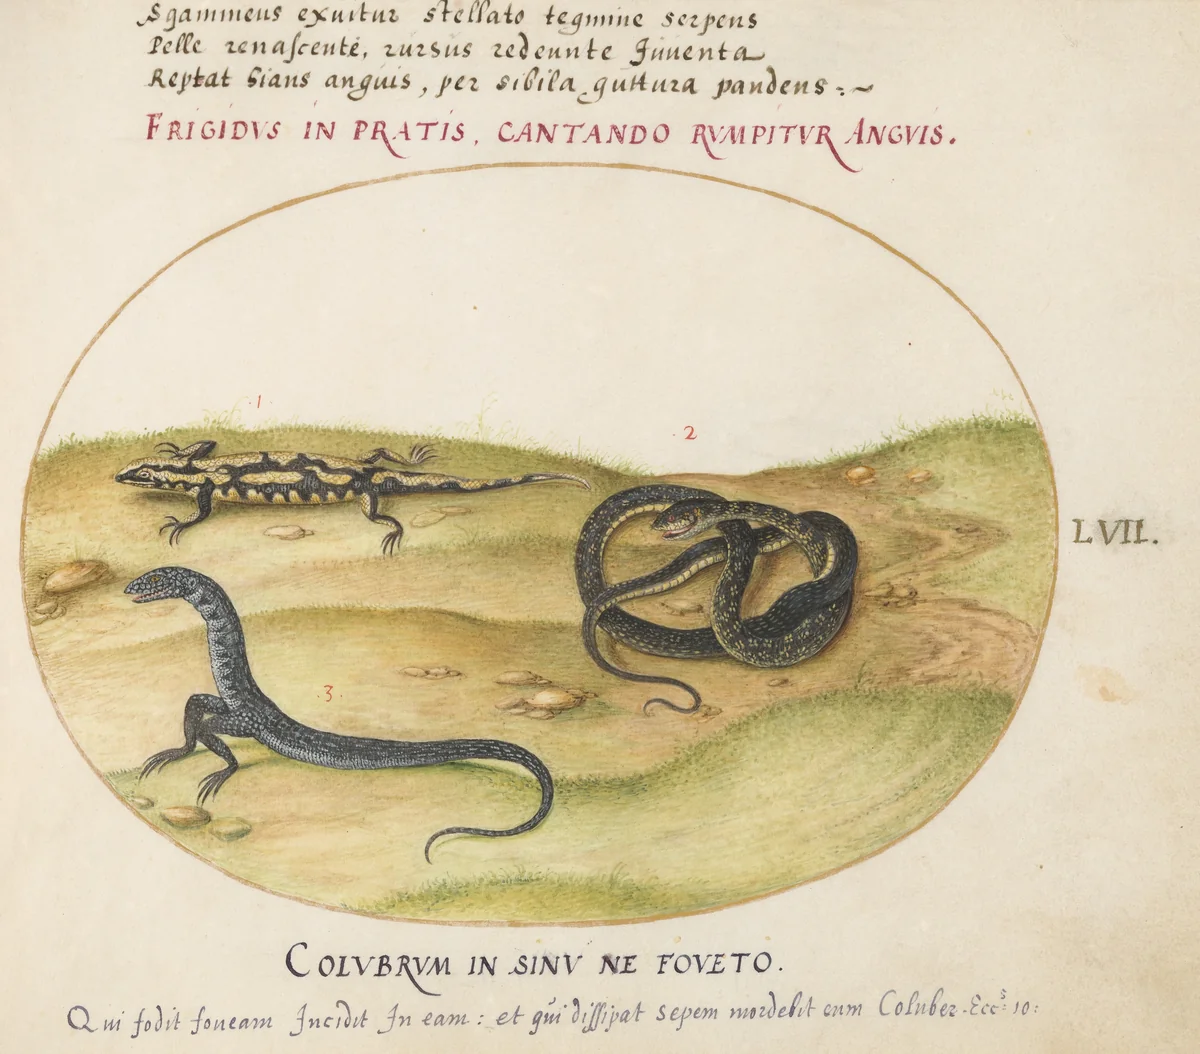 Sgammeus exuitur stellato tegmine serpens
Pelle renascente, rursus redeunte Juventa
Reptat hians anguis, per sibila guttura pandens :~
FRIGIDVS IN PRATIS, CANTANDO RVMPITVR ANGVIS.
1
2
LVII.
3
COLVBRVM IN SINV NE FOVETO.
Qui fodit foveam Incidit In eam : et qui dissipat sepem mordebit eum Coluber. Eccs 10: